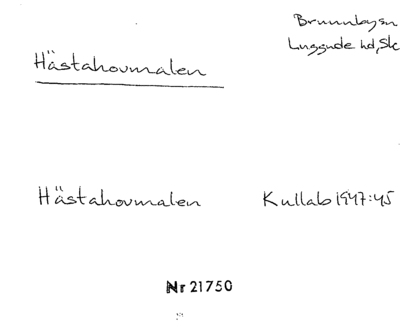 Brunnby sn
Luggude hd, Sk
Hästahovmalen
Hästahovmalen Kullab 1947:45
Nr 21750